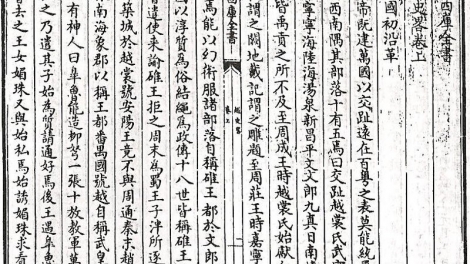 四庫全書
史畧卷上
國初沿革
帝既建萬國以交趾遠在百粤之表莫能統
西南隅其部落十有五焉曰交趾越裳氏武
寧寧海陸海湯泉新昌平文文郎九真日南
皆禹貢之所不及至周成王時越裳氏始獻
謂之闕地戴記謂之雕題至周莊王時嘉寧
四庫全書
越史畧
卷上
焉能以幻術服諸部落自稱碓王都於文郎
以淳質為俗結繩為政傳十八世皆稱碓王
遣使來諭碓王拒之周末為蜀王子泮所逐
築城於越裳號安陽王竟不與周通秦末趙
南海象郡以稱王都番禺國號越自稱武皇
有神人曰臯魯能造柳弩一張十放教軍萬
之乃遣其子始為質請通好焉後王遇臯魯
去之王女媚珠又與始私焉始誘媚珠求看